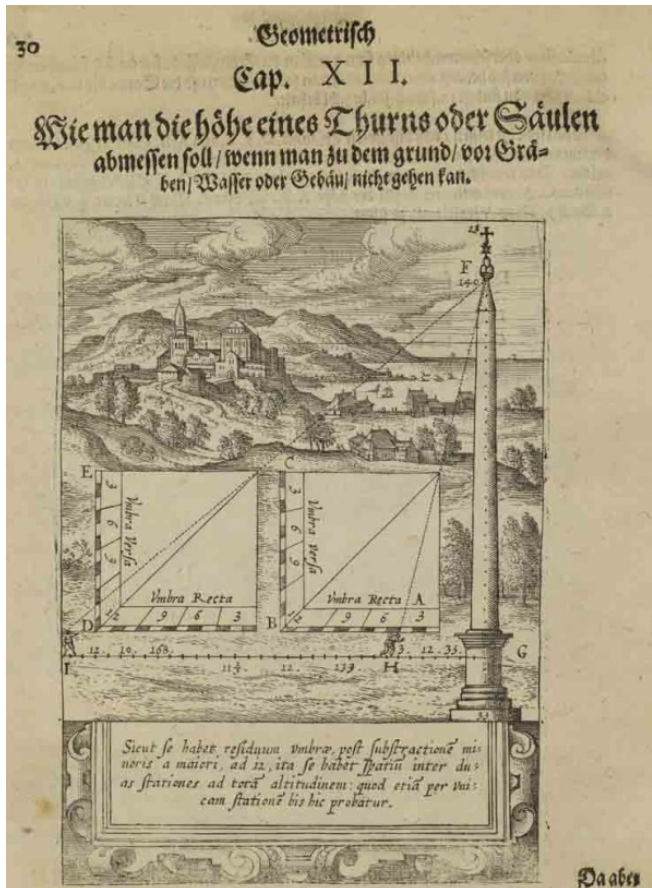 30
Geometrisch
Cap. XII.
Wie man die höhe eines Thurns oder Säulen
abmessen soll / wenn man zu dem grund / vor Grä-
ben / Wasser oder Gebäu / nicht gehen kan.
F
140
E
C
3
6
3
Vmbra Versa
3
6
9
Vmbra Versa
Vmbra Recta
Vmbra Recta A
D
12
9
6
3
B
12
9
6
3
I
12. 10. 168.
11¼
12. 133
H
3. 12. 35.
G
35
Sicut se habet residuum vmbræ, post substractionē mi-
noris a maiori, ad 12, ita se habet spatiū inter du-
as stationes ad totā altitudinem: quod etiā per vni-
cam stationē bis hic probatur.
Da aber